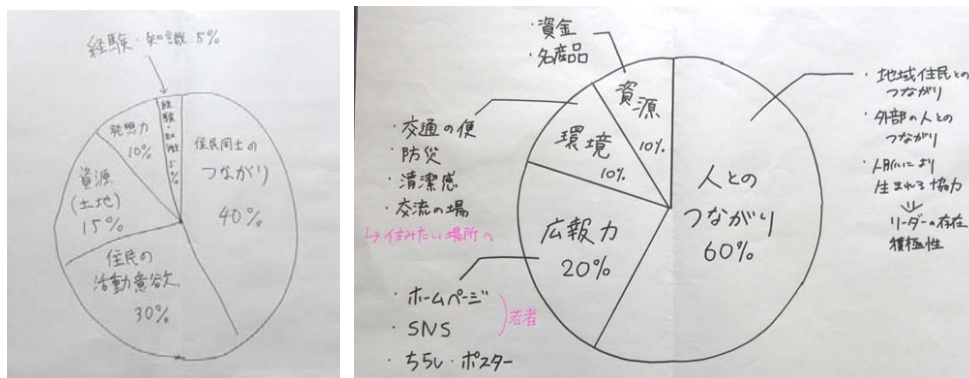 経験・知識 5%
経験・知識 5%
発想力
10%
資源
(土地)
15%
住民の
活動意欲
30%
住民同士の
つながり
40%
・資金
・名産品
資源
10%
環境
10%
・交通の便
・防災
・清潔感
・交流の場
↳住みたい場所へ
広報力
20%
・ホームページ
・SNS
・ちらし・ポスター
若者
人との
つながり
60%
・地域住民との
つながり
・外部の人との
つながり
・人脈により
生まれる協力
リーダーの存在
積極性